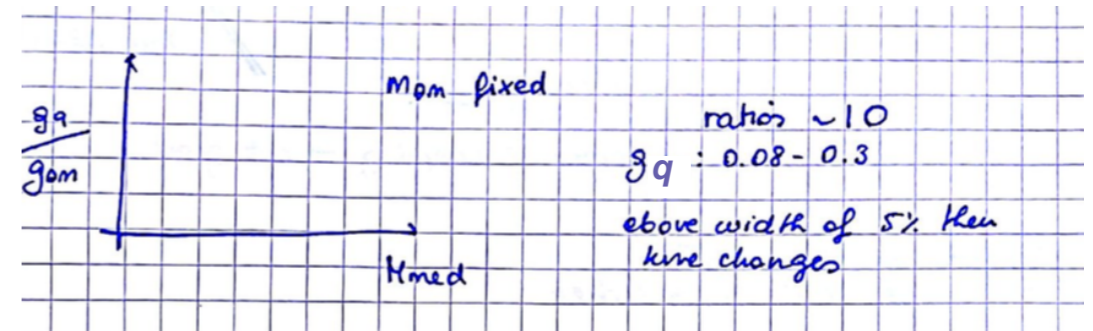 mDM fixed
gq
gDM
Mmed
ratios ~10
gq : 0.08 - 0.3
above width of 5% then
kine changes